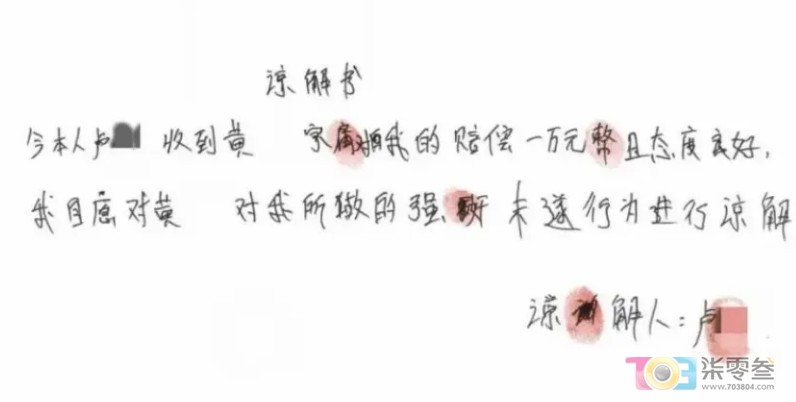 谅解书
今本人卢 收到黄 家属对我的赔偿一万元整且态度良好，
我自愿对黄 对我所做的强奸未遂行为进行谅解
谅解人：卢
703 柒零叁
www.703804.com